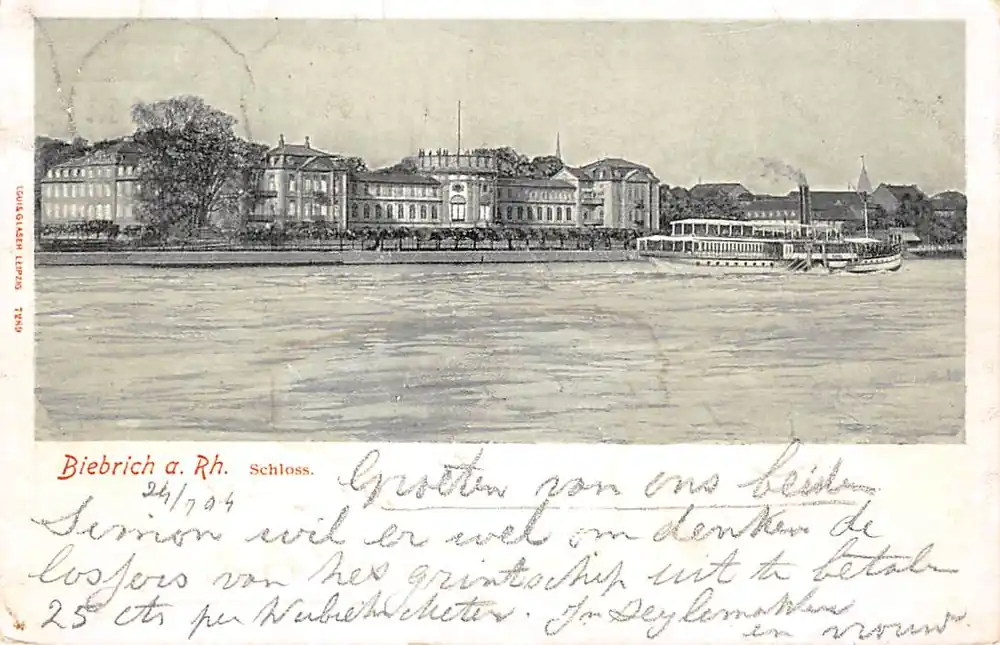 LOUIS GLASER LEIPZIG 7280
Biebrich a. Rh. Schloss.
24/7 04
Groeten van ons beiden
Simon wil er wel om denken de
lossers van het grintschip uit te betalen
25 cts per Kubiekmeter.
en vrouw